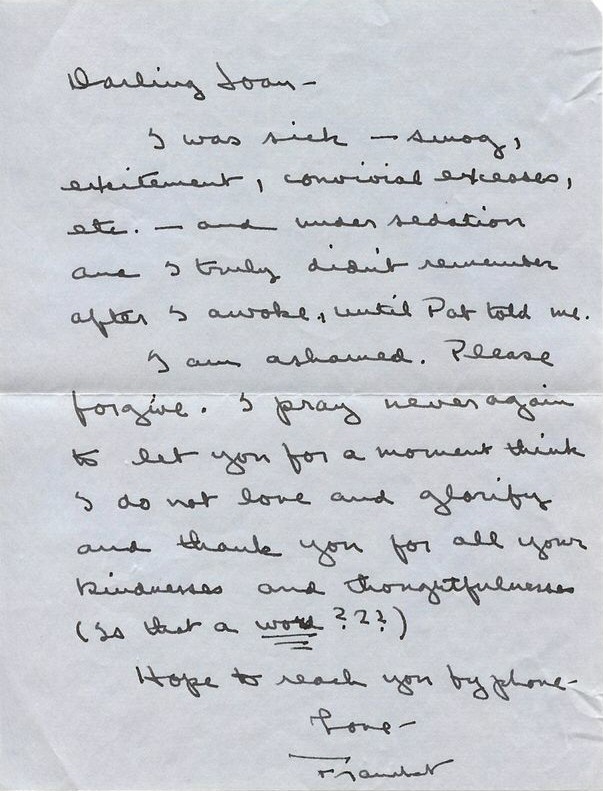 Darling Joan -
I was sick - smog,
excitement, convivial excesses,
etc. - and under sedation
and I truly didn't remember
after I awoke, until Pat told me.
I am ashamed. Please
forgive. I pray never again
to let you for a moment think
I do not love and glorify
and thank you for all your
kindnesses and thoughtfulnesses
(Is that a word ???)
Hope to reach you by phone -
Love -
Franchot